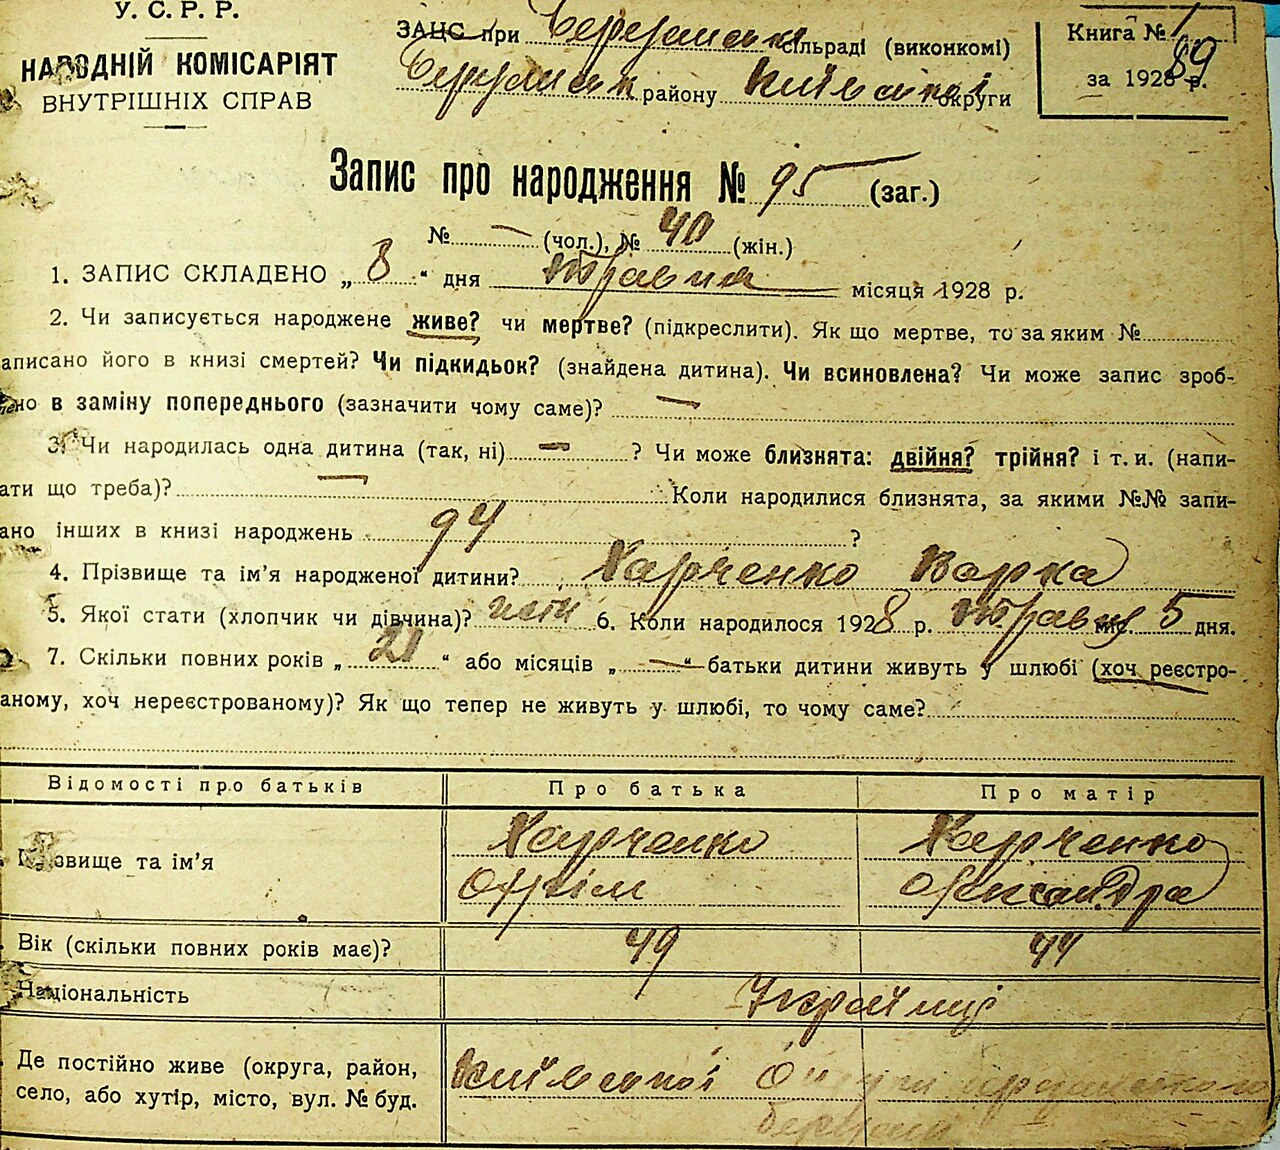 У. С. Р. Р.
НАРОДНІЙ КОМІСАРІЯТ
ВНУТРІШНІХ СПРАВ
ЗАЦС при Березанськ сільраді (виконкомі)
Березанськ району Київської округи
Книга №
за 1928 р.
Запис про народження № 95 (заг.)
№ — (чол.), № 40 (жін.)
1. ЗАПИС СКЛАДЕНО „ 8 “ дня травня місяця 1928 р.
2. Чи записується народжене живе? чи мертве? (підкреслити). Як що мертве, то за яким №
аписано його в книзі смертей? Чи підкидьок? (знайдена дитина). Чи всиновлена? Чи може запис зроб-
лено в заміну попереднього (зазначити чому саме)? —
3. Чи народилась одна дитина (так, ні) — ? Чи може близнята: двійня? трійня? і т. и. (напи-
ати що треба)? — Коли народилися близнята, за якими №№ запи-
ано інших в книзі народжень 94 ?
4. Прізвище та ім’я народженої дитини? Харченко Варка
5. Якої стати (хлопчик чи дівчина)? 6. Коли народилося 1928 р. травня міс. 5 дня.
7. Скільки повних років „ 21 “ або місяців „ — “ батьки дитини живуть у шлюбі (хоч реєстро-
аному, хоч нереєстрованому)? Як що тепер не живуть у шлюбі, то чому саме?
Відомості про батьків
Про батька
Про матір
Прізвище та ім’я
Харченко
Охрім
Харченко
Олександра
Вік (скільки повних років має)?
49
44
Національність
Українці
Де постійно живе (округа, район,
село, або хутір, місто, вул. № буд.
Київської Округи